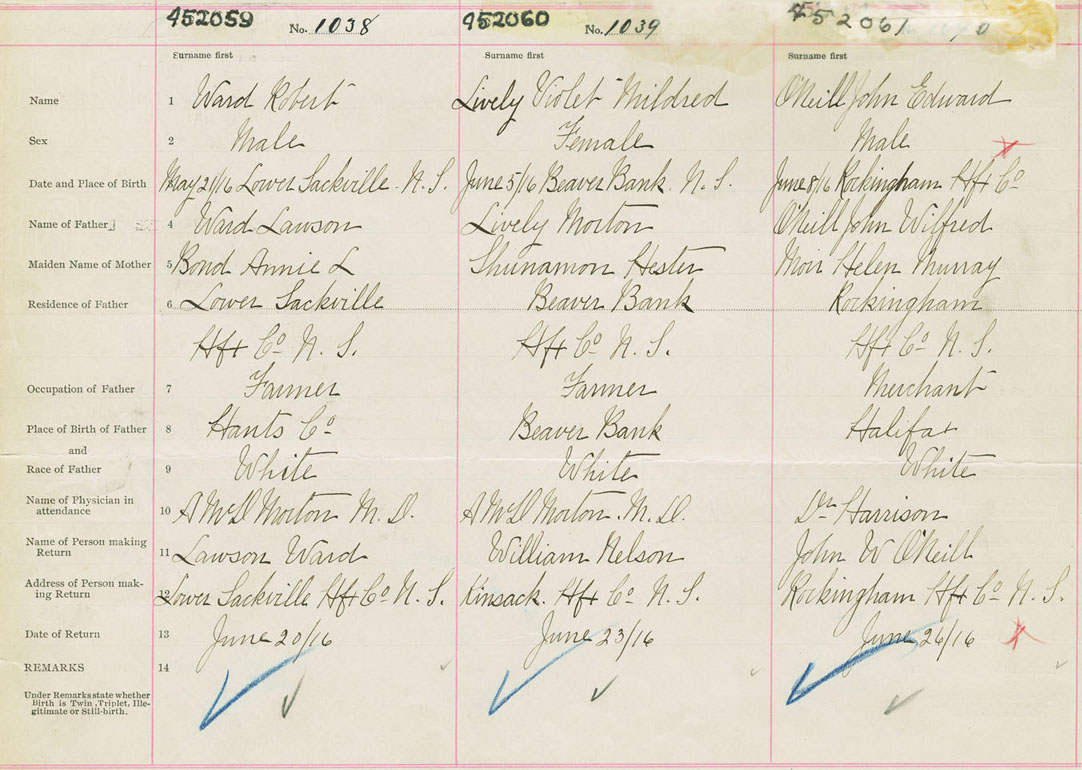 452059 No. 1038 452060 No. 1039 452061
Surname first Surname first Surname first
Name 1 Ward Robert Lively Violet Mildred O'Neill John Edward
Sex 2 Male Female Male
Date and Place of Birth 3 May 21/16 Lower Sackville N.S. June 5/16 Beaver Bank N.S. June 8/16 Rockingham Hfx Co
Name of Father 4 Ward Lawson Lively Morton O'Neill John Wilfred
Maiden Name of Mother 5 Bond Annie L Shunamon Hester Moir Helen Murray
Residence of Father 6 Lower Sackville Beaver Bank Rockingham
Hfx Co N.S. Hfx Co N.S. Hfx Co N.S.
Occupation of Father 7 Farmer Farmer Merchant
Place of Birth of Father 8 Hants Co Beaver Bank Halifax
and
Race of Father 9 White White White
Name of Physician in
attendance 10 A McD Morton M.D. A McD Morton M.D. Dr Harrison
Name of Person making
Return 11 Lawson Ward William Nelson John W O'Neill
Address of Person mak-
ing Return 12 Lower Sackville Hfx Co N.S. Kinsack. Hfx Co N.S. Rockingham Hfx Co N.S.
Date of Return 13 June 20/16 June 23/16 June 26/16
REMARKS 14
Under Remarks state whether
Birth is Twin, Triplet, Ille-
gitimate or Still-birth.